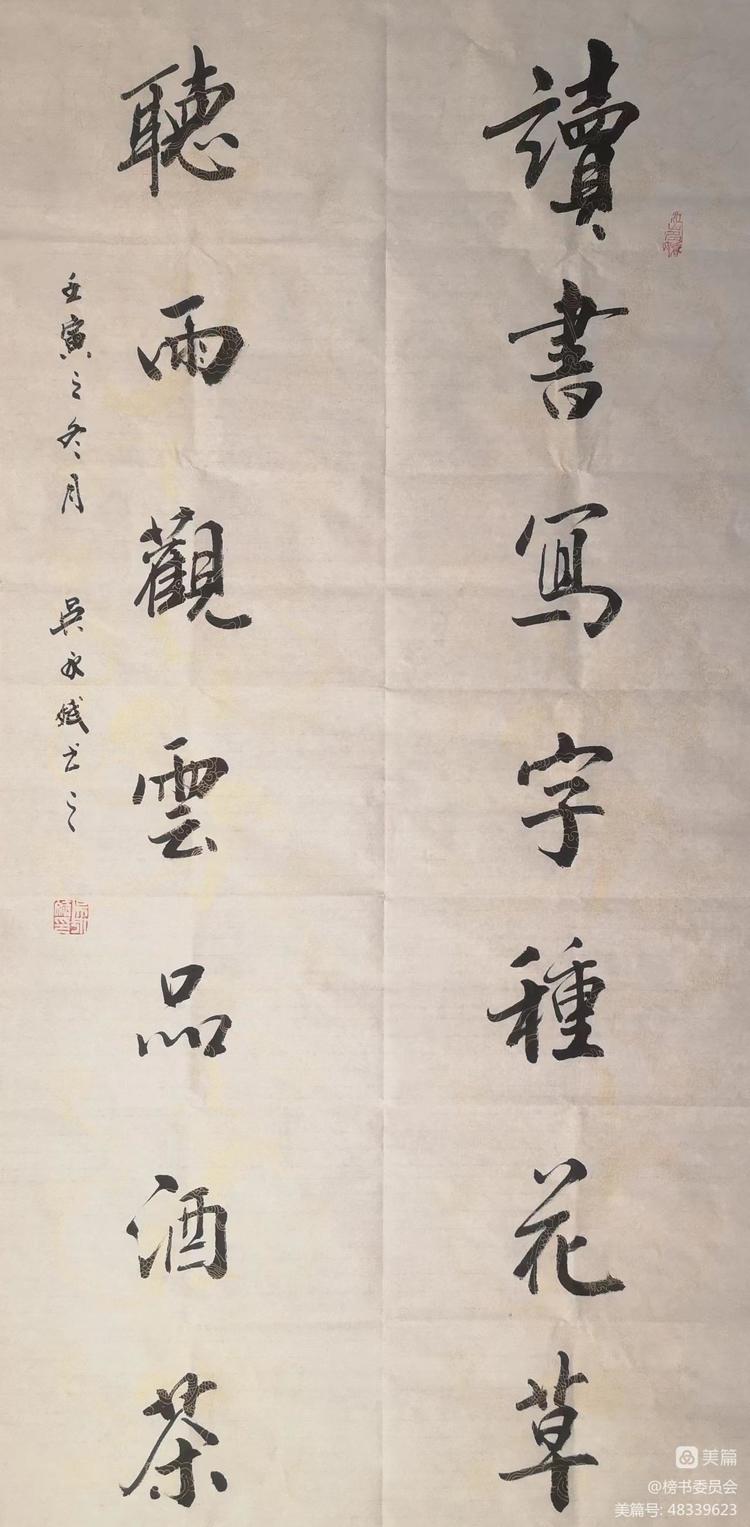 讀書寫字種花草
聽雨觀雲品酒茶
壬寅之冬月 吳永斌书之
美篇
@榜书委员会
美篇号: 48339623